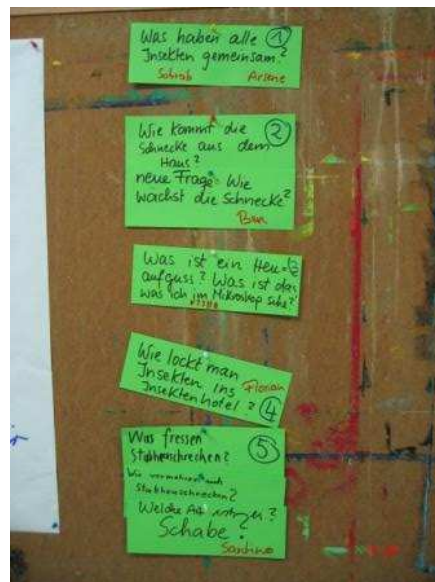 Was haben alle ①
Insekten gemeinsam?
Sohrab Arsene
Wie kommt die ②
Schnecke aus dem
Haus?
neue Frage: Wie
wächst die Schnecke?
Was ist ein Heu= ③
aufguss? Was ist das
was ich im Mikroskop sehe?
Wie lockt man
Insekten ins Florian
Insektenhotel? ④
Was fressen ⑤
Stabheuschrecken?
Wie vermehren sich
Stabheuschrecken?
Welche Art
Schabe?